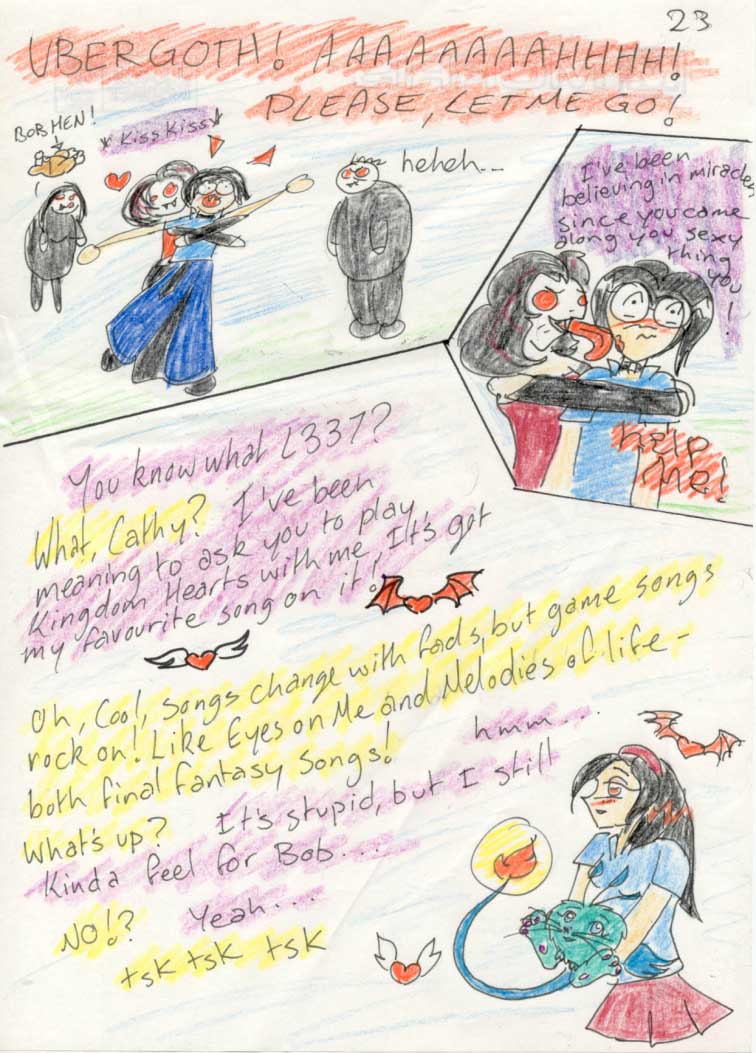 23
UBERGOTH! AAAAAAAAHHHH!
PLEASE, LET ME GO!
BOB HEN!
*KissKiss*
heheh...
I've been
believing in miracles
since you came
along you sexy
thing
you
!
help
Me!
You know what L337?
What, Cathy? I've been
meaning to ask you to play
Kingdom Hearts with me, It's got
my favourite song on it!
Oh, Cool, Songs change with fads, but game songs
rock on! Like Eyes on Me and Melodies of life -
both final fantasy songs!
hmm...
What's up? It's stupid, but I still
Kinda feel for Bob...
NO!? Yeah...
tsk tsk tsk